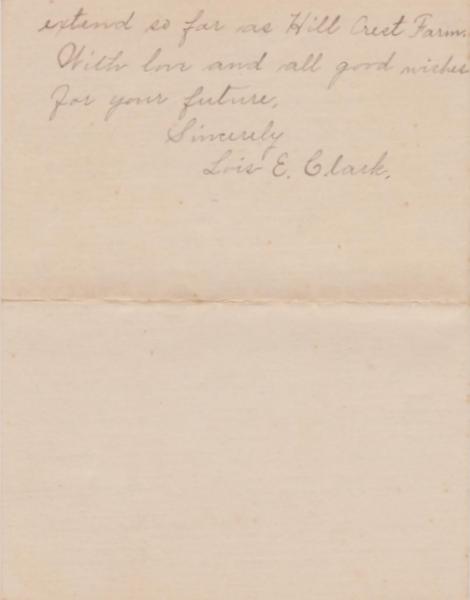 extend so far as Hill Crest Farm.
With love and all good wishes
for your future,
Sincerely
Lois E. Clark.